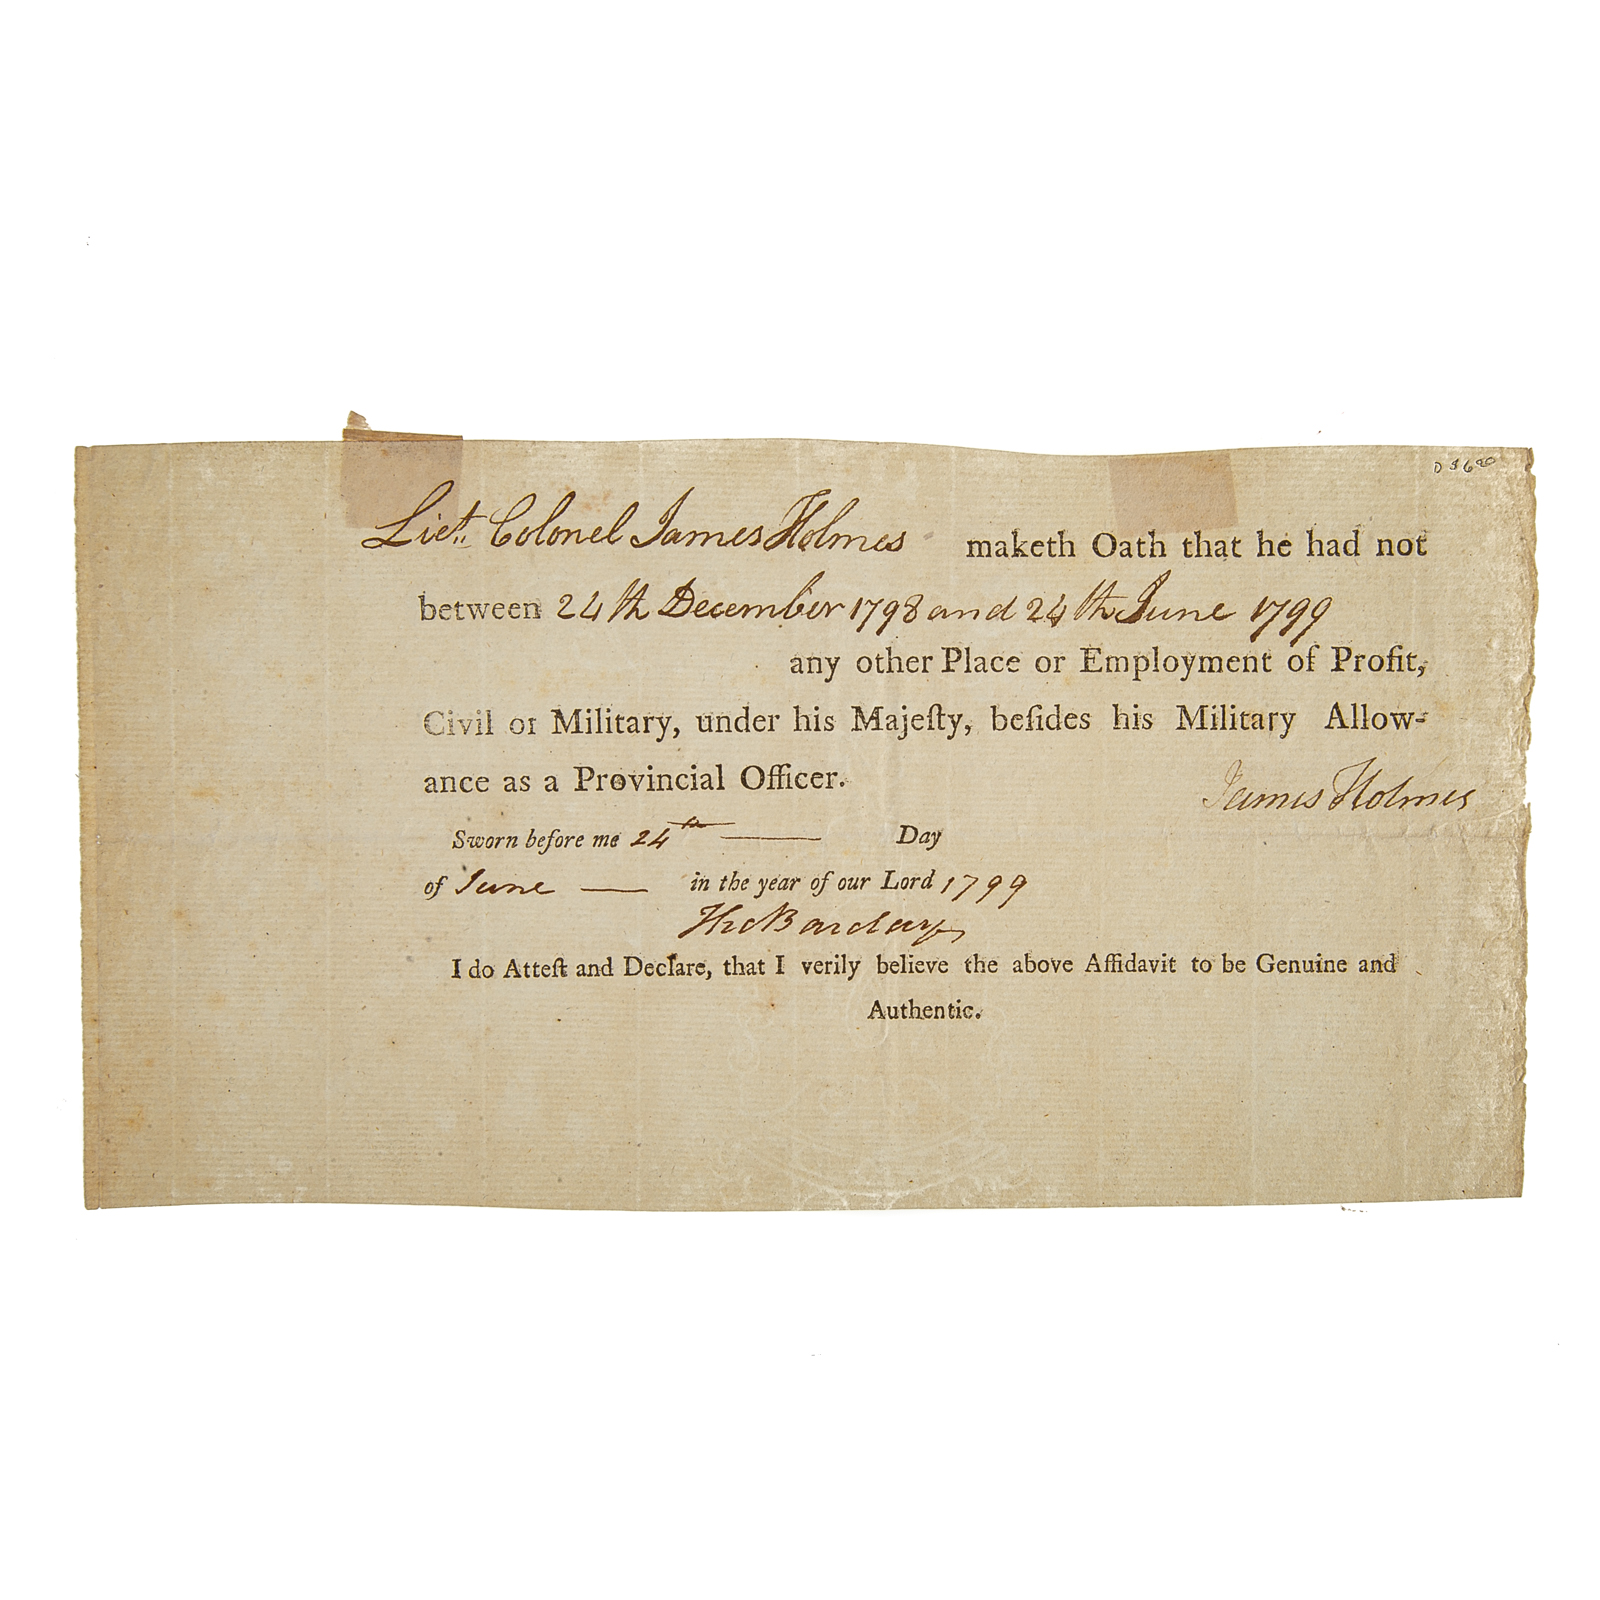 Lieut. Colonel James Holmes maketh Oath that he had not
between 24th December 1798 and 24th June 1799
any other Place or Employment of Profit,
Civil or Military, under his Majeſty, beſides his Military Allow-
ance as a Provincial Officer.
James Holmes
Sworn before me 24th Day
of June in the year of our Lord 1799
Tho Barclay
I do Atteſt and Declare, that I verily believe the above Affidavit to be Genuine and
Authentic.